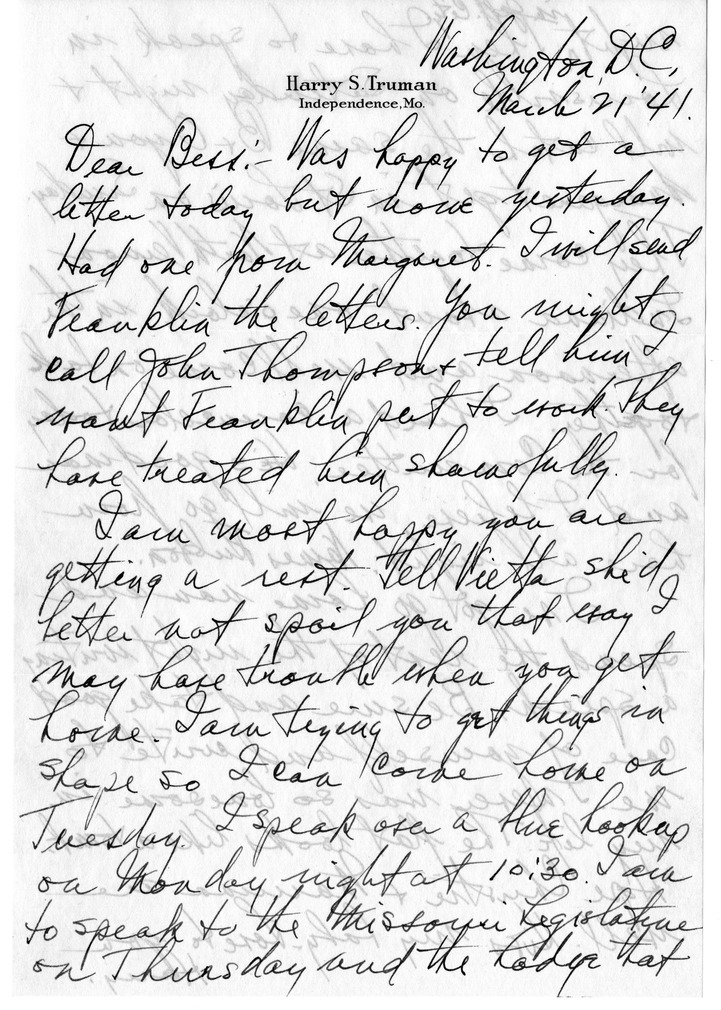 Washington, D.C.
Harry S. Truman
Independence, Mo.
March 21 '41.
Dear Bess:- Was happy to get a
letter today but none yesterday.
Had one from Margaret. I will send
Franklin the letters. You might
call John Thompson & tell him I
want Franklin put to work. They
have treated him shamefully.
I am most happy you are
getting a rest. Tell Vietta she'd
better not spoil you that way I
may have trouble when you get
home. I am trying to get things in
shape so I can come home on
Tuesday. I speak over a blue hookup
on Monday night at 10:30. I am
to speak to the Missouri Legislature
on Thursday and the Lodge that